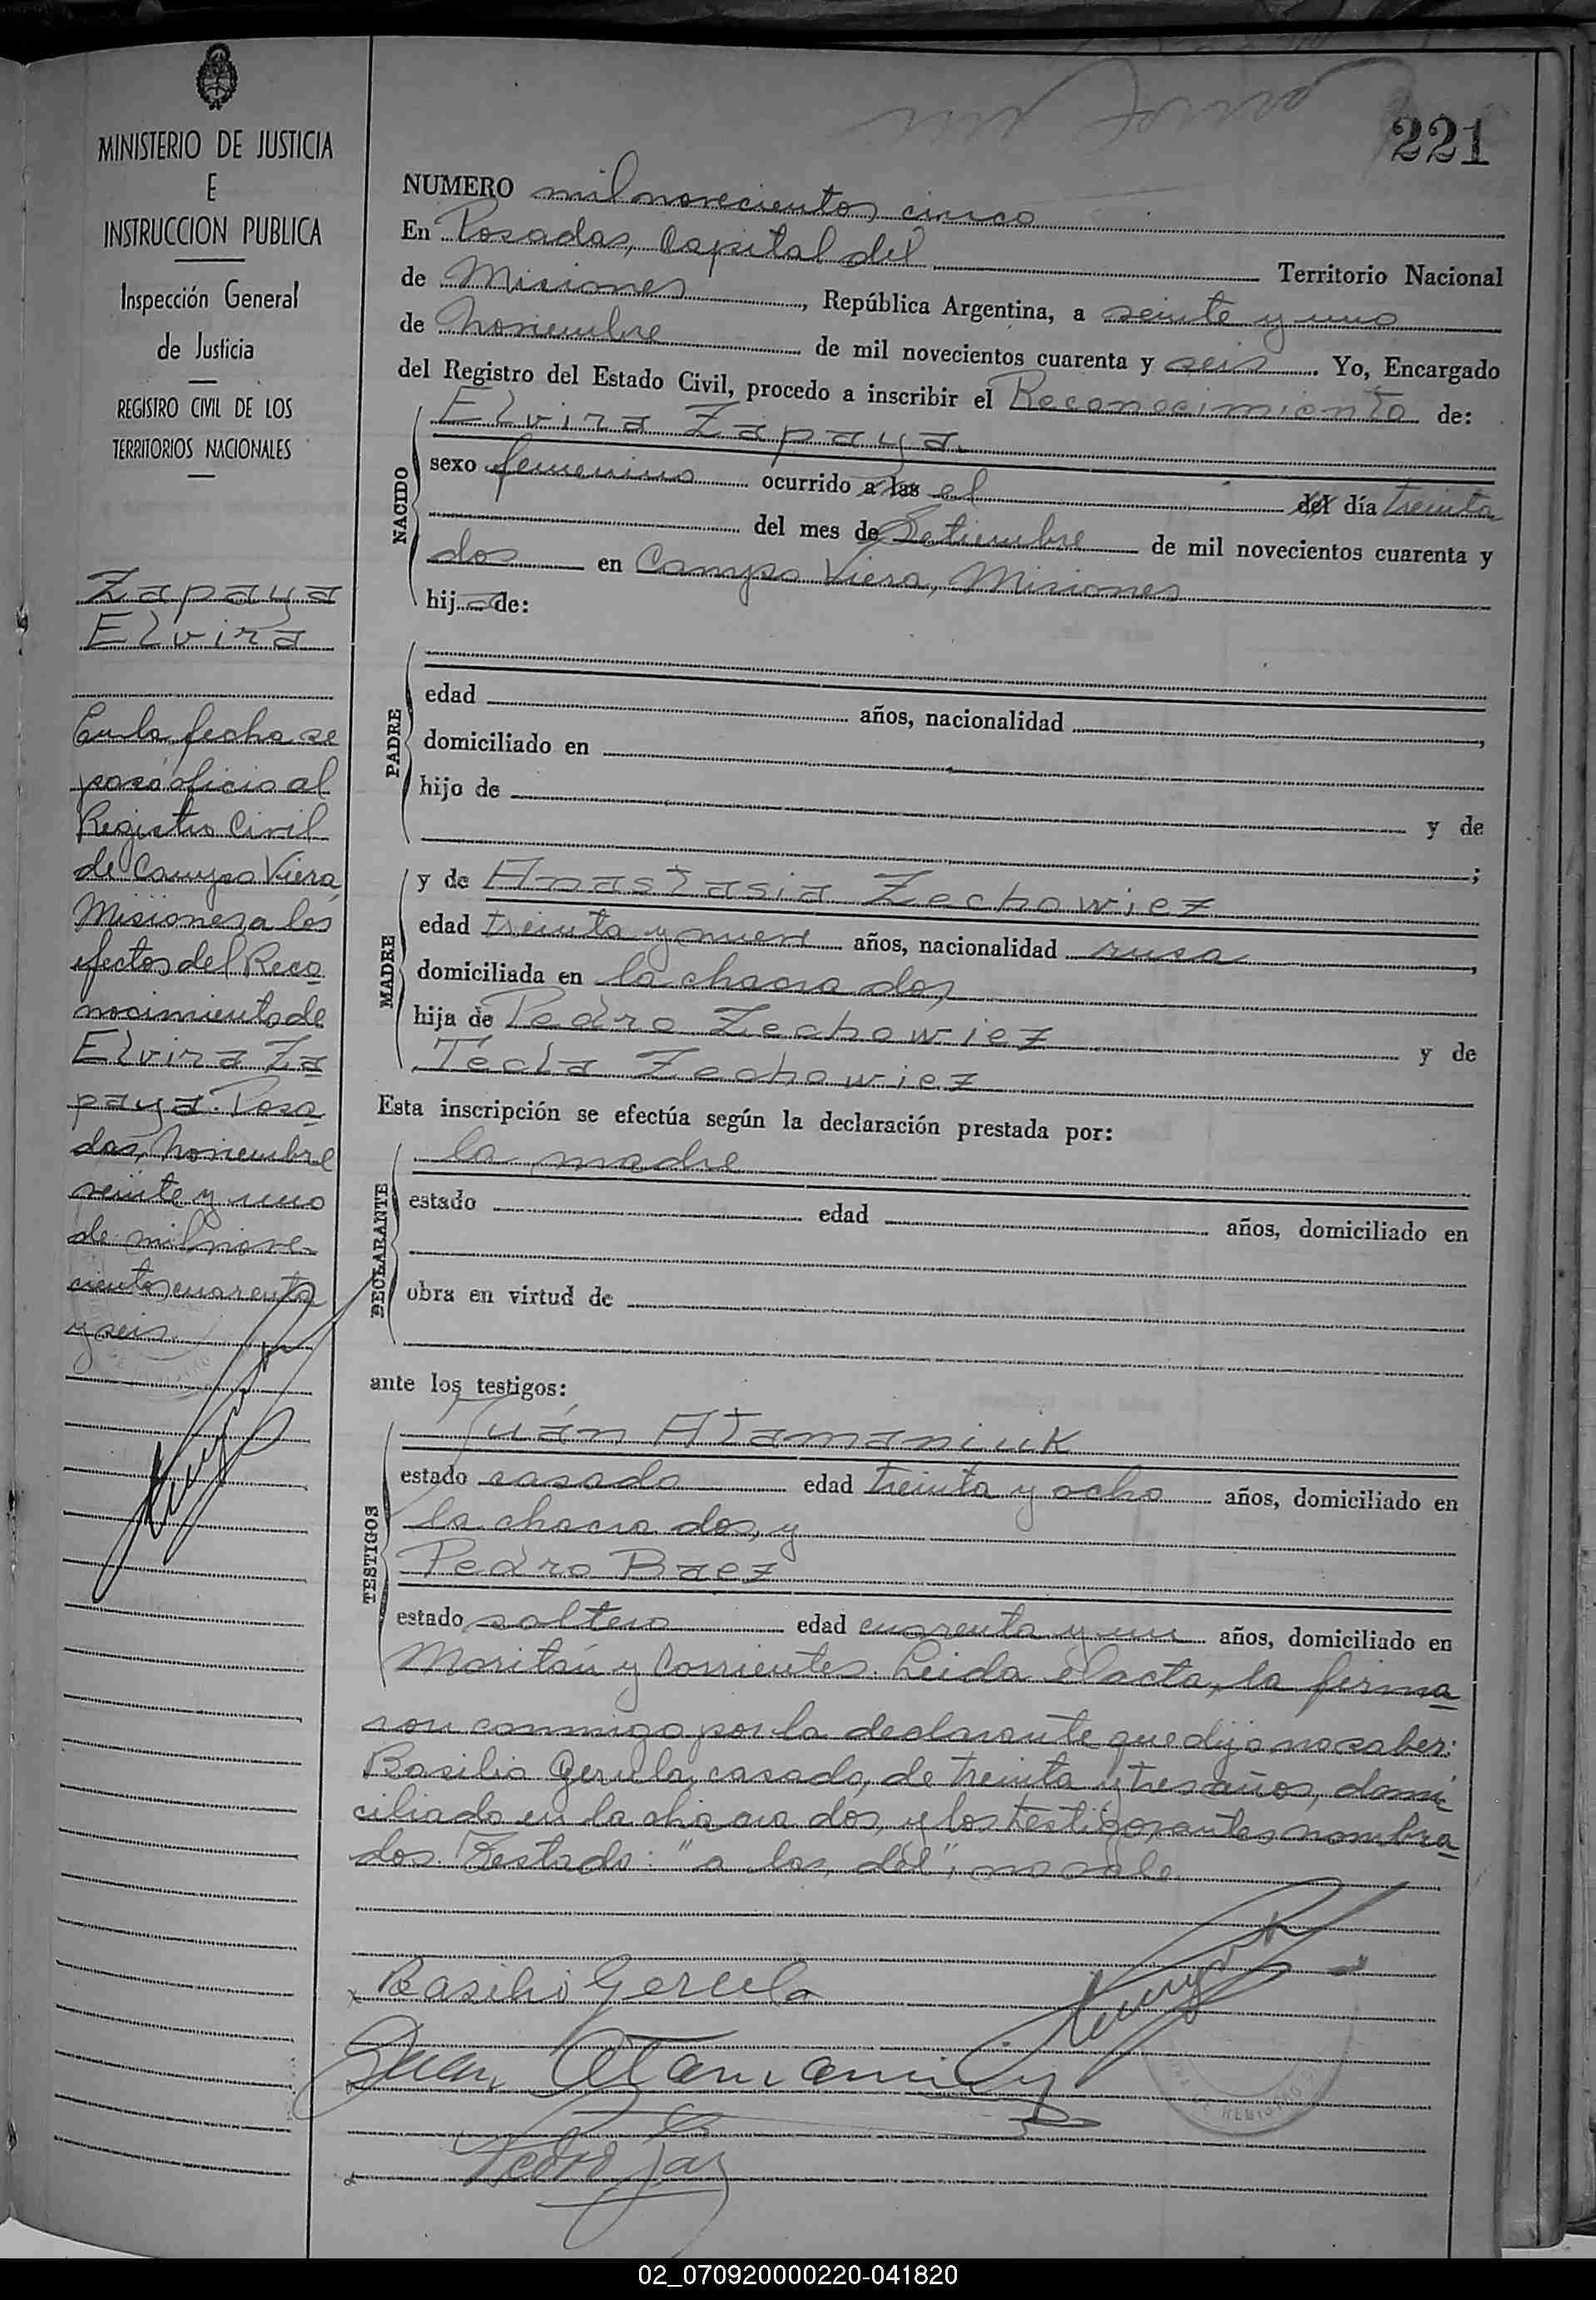 221
MINISTERIO DE JUSTICIA
E
INSTRUCCION PUBLICA
Inspección General
de Justicia
REGISTRO CIVIL DE LOS
TERRITORIOS NACIONALES
Zapaya
Elvira
En la fecha se
pasó oficio al
Registro Civil
de Campo Viera,
Misiones, a los
efectos del Reco
nocimiento de
Elvira Za
paya. Posa
das, Noviembre
veinte y uno
de mil nove-
cientos cuarenta
y seis.
NUMERO mil novecientos cinco
En Posadas, Capital del Territorio Nacional
de Misiones, República Argentina, a veinte y uno
de Noviembre de mil novecientos cuarenta y seis. Yo, Encargado
del Registro del Estado Civil, procedo a inscribir el Reconocimiento de:
NACIDO
Elvira Zapaya.
sexo femenino ocurrido a las el del día treinta
del mes de Setiembre de mil novecientos cuarenta y
dos en Campo Viera, Misiones
hija de:
PADRE
edad años, nacionalidad ,
domiciliado en
hijo de y de
;
MADRE
y de Anastasia Zechowiez
edad treinta y nueve años, nacionalidad rusa,
domiciliada en la chacra dos,
hija de Pedro Zechowiez y de
Tecla Zechowiez
Esta inscripción se efectúa según la declaración prestada por:
DECLARANTE
la madre
estado edad años, domiciliado en
obra en virtud de
ante los testigos:
TESTIGOS
Juán Atamaniuk
estado casado edad treinta y ocho años, domiciliado en
la chacra dos, y
Pedro Baez
estado soltero edad cuarenta y un años, domiciliado en
Moritán y Corrientes. Leida el acta, la firma
ron conmigo por la declarante que dijo no saber:
Basilio Gerula, casado, de treinta y tres años, domi
ciliado en la chacra dos, y los testigos antes nombra
dos. Testado: "a las, del", no vale.
x Basilio Gerula
Juan Atamaniuk